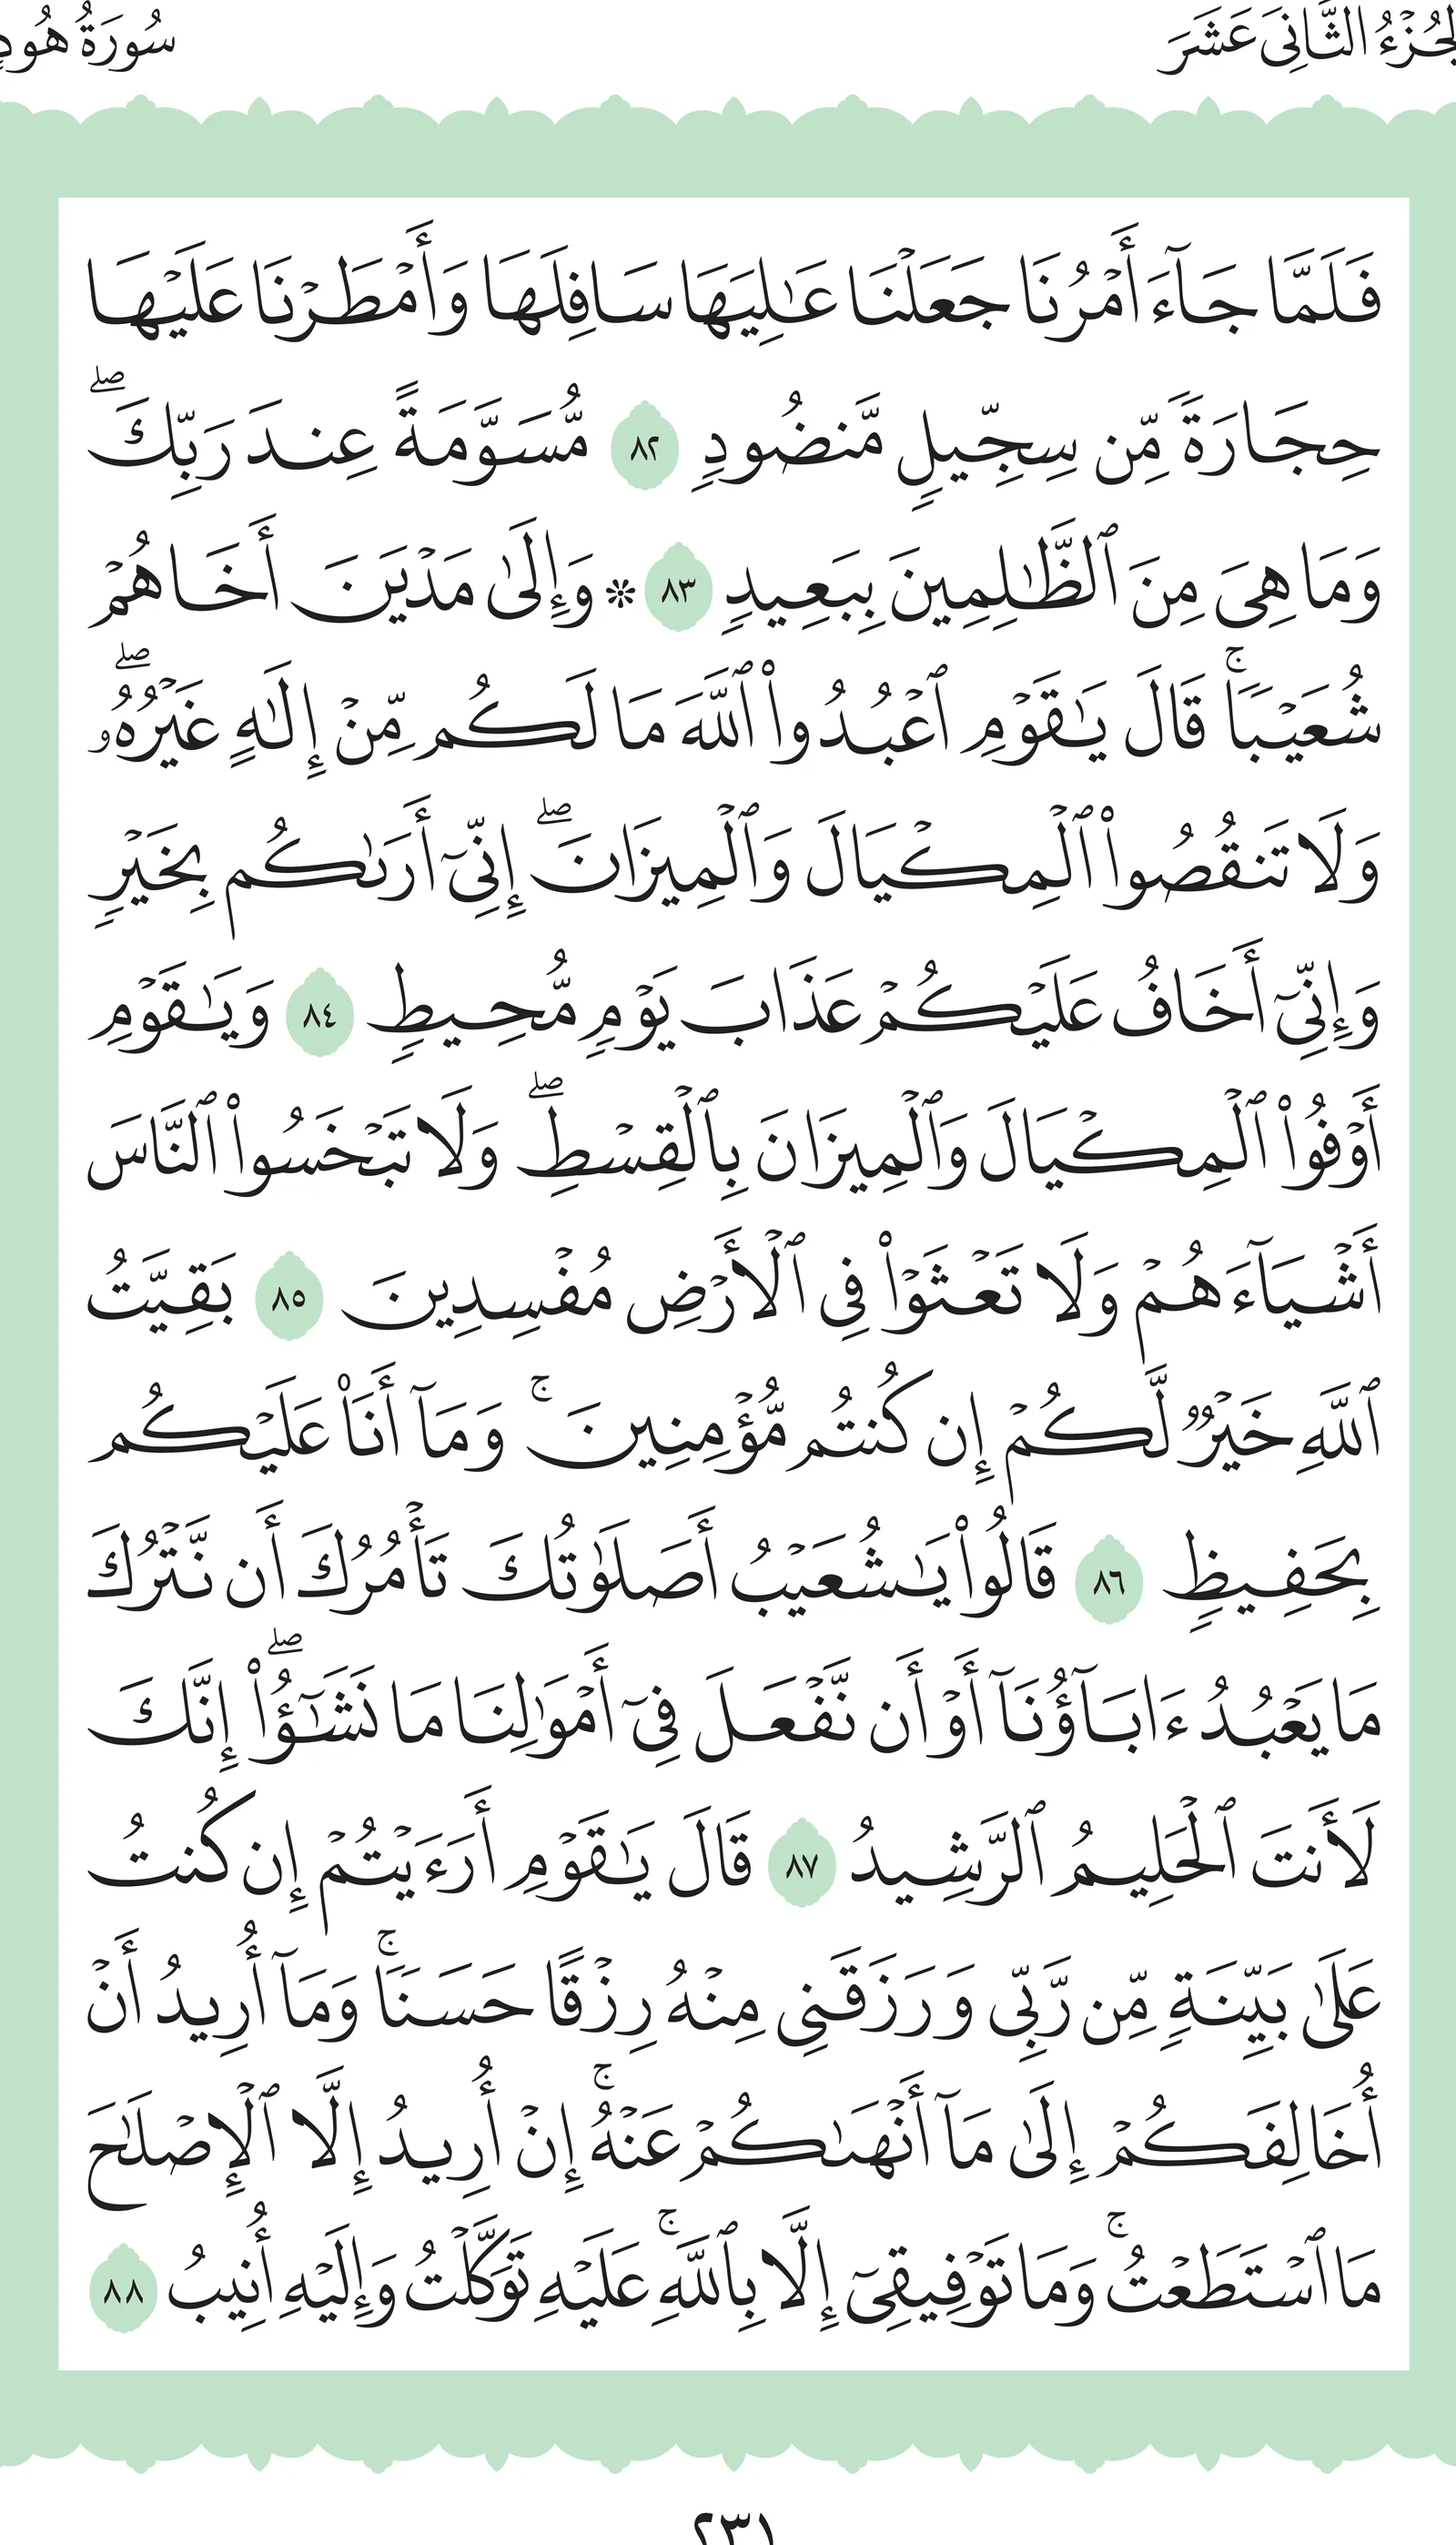 الجُزْءُ الثَّانِىَ عَشَرَ
سُورَةُ هُودٍ
فَلَمَّا جَآءَ أَمْرُنَا جَعَلْنَا عَـٰلِيَهَا سَافِلَهَا وَأَمْطَرْنَا عَلَيْهَا
حِجَارَةً مِّن سِجِّيلٍ مَّنضُودٍ ٨٢ مُّسَوَّمَةً عِندَ رَبِّكَۖ
وَمَا هِىَ مِنَ ٱلظَّـٰلِمِينَ بِبَعِيدٍ ٨٣ * وَإِلَىٰ مَدْيَنَ أَخَاهُمْ
شُعَيْبًاۚ قَالَ يَـٰقَوْمِ ٱعْبُدُوا۟ ٱللَّهَ مَا لَكُم مِّنْ إِلَـٰهٍ غَيْرُهُۥۖ
وَلَا تَنقُصُوا۟ ٱلْمِكْيَالَ وَٱلْمِيزَانَۖ إِنِّىٓ أَرَىٰكُم بِخَيْرٍ
وَإِنِّىٓ أَخَافُ عَلَيْكُمْ عَذَابَ يَوْمٍ مُّحِيطٍ ٨٤ وَيَـٰقَوْمِ
أَوْفُوا۟ ٱلْمِكْيَالَ وَٱلْمِيزَانَ بِٱلْقِسْطِۖ وَلَا تَبْخَسُوا۟ ٱلنَّاسَ
أَشْيَآءَهُمْ وَلَا تَعْثَوْا۟ فِى ٱلْأَرْضِ مُفْسِدِينَ ٨٥ بَقِيَّتُ
ٱللَّهِ خَيْرٌ لَّكُمْ إِن كُنتُم مُّؤْمِنِينَۚ وَمَآ أَنَا۠ عَلَيْكُم
بِحَفِيظٍ ٨٦ قَالُوا۟ يَـٰشُعَيْبُ أَصَلَوٰتُكَ تَأْمُرُكَ أَن نَّتْرُكَ
مَا يَعْبُدُ ءَابَآؤُنَآ أَوْ أَن نَّفْعَلَ فِىٓ أَمْوَٰلِنَا مَا نَشَـٰٓؤُا۟ۖ إِنَّكَ
لَأَنتَ ٱلْحَلِيمُ ٱلرَّشِيدُ ٨٧ قَالَ يَـٰقَوْمِ أَرَءَيْتُمْ إِن كُنتُ
عَلَىٰ بَيِّنَةٍ مِّن رَّبِّى وَرَزَقَنِى مِنْهُ رِزْقًا حَسَنًاۚ وَمَآ أُرِيدُ أَنْ
أُخَالِفَكُمْ إِلَىٰ مَآ أَنْهَىٰكُمْ عَنْهُۚ إِنْ أُرِيدُ إِلَّا ٱلْإِصْلَـٰحَ
مَا ٱسْتَطَعْتُۚ وَمَا تَوْفِيقِىٓ إِلَّا بِٱللَّهِۚ عَلَيْهِ تَوَكَّلْتُ وَإِلَيْهِ أُنِيبُ ٨٨
٢٣١